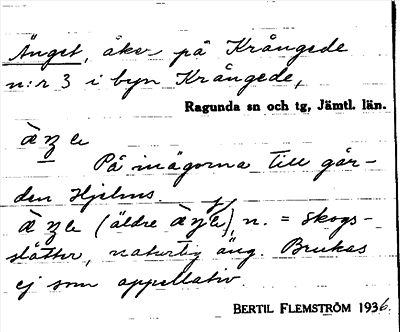 Änget, åker på Krångede
n:r 3 i byn Krångede,
Ragunda sn och tg, Jämtl. län.
På inägorna till går-
den Hjelms.
(äldre n. = skogs-
slåtter, naturlig äng. Brukas
ej som appellativ.
BERTIL FLEMSTRÖM 1936.